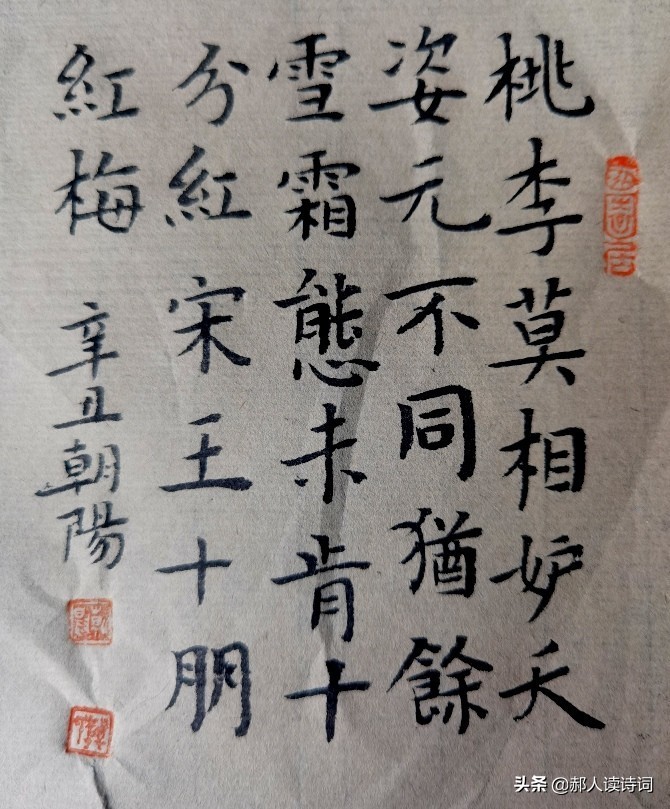 桃李莫相妒夭
姿元不同猶餘
雪霜態未肯十
分紅宋王十朋
紅梅 辛丑朝陽
头条 @郝人读诗词